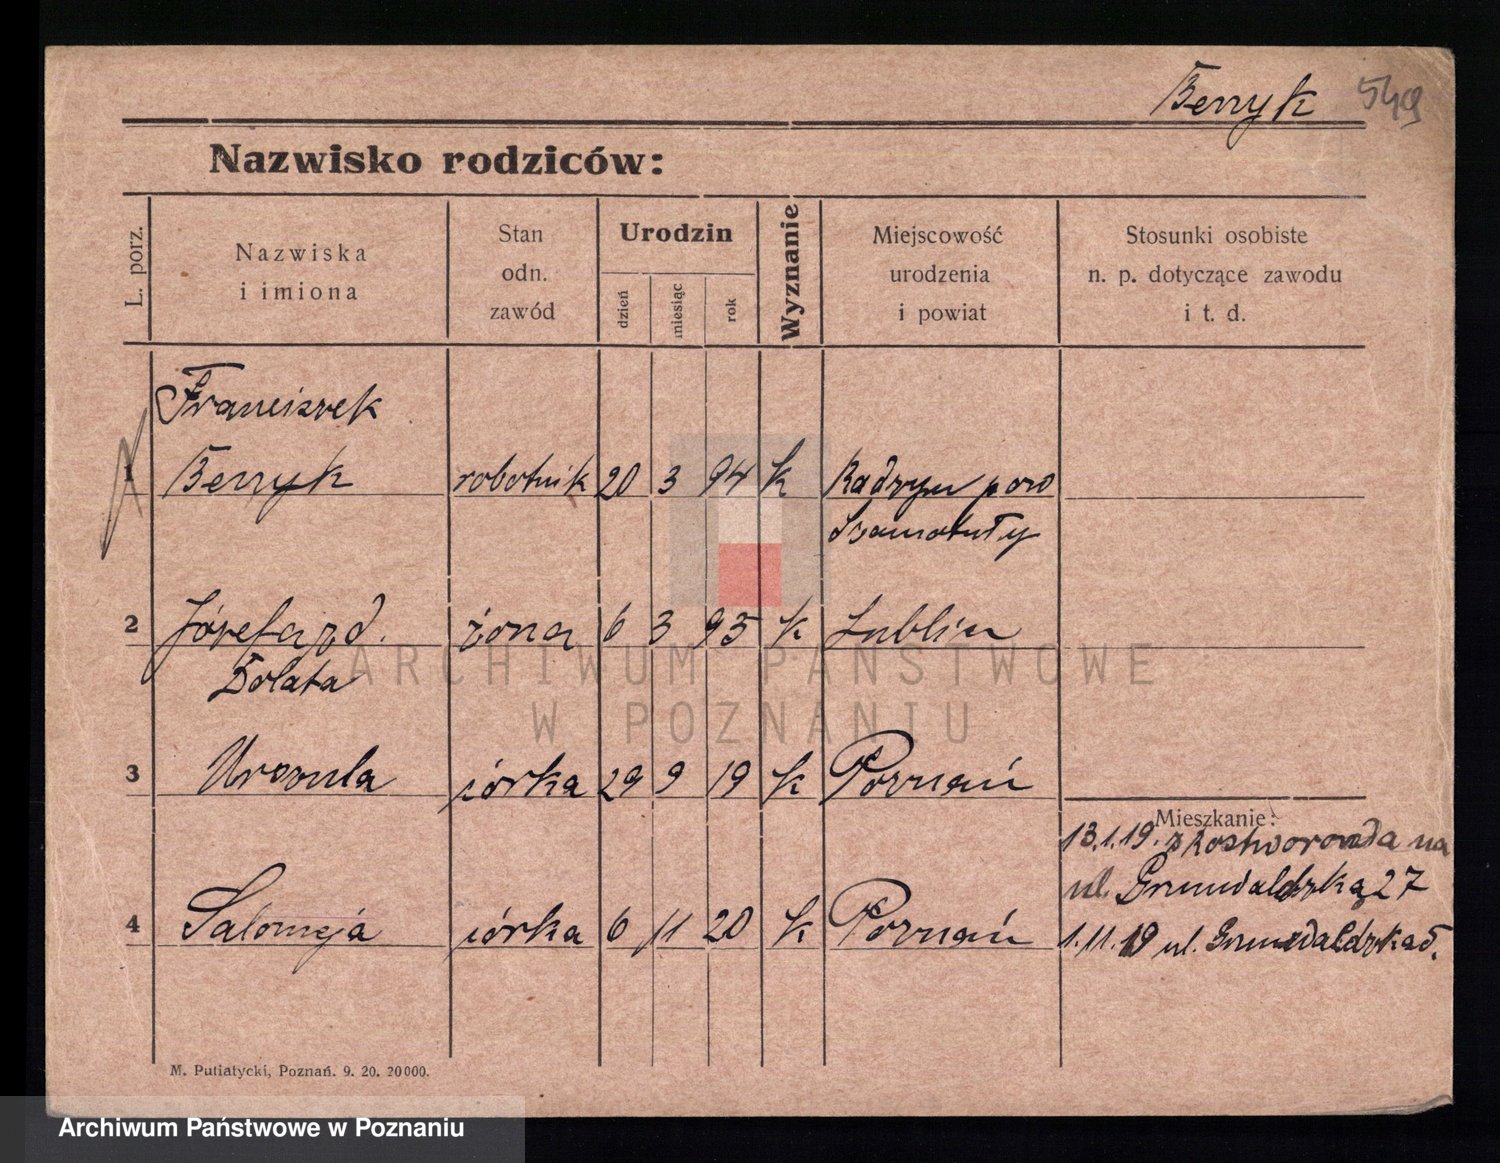 Berryk 549
Nazwisko rodziców:
L. porz.
Nazwiska
i imiona
Stan
odn.
zawód
Urodzin
dzień
miesiąc
rok
Wyznanie
Miejscowość
urodzenia
i powiat
Stosunki osobiste
n. p. dotyczące zawodu
i t. d.
Franciszek
1 Berryk robotnik 20 3 94 k Radzyn pow
Szamotuły
2 Józefa zd. żona 6 3 95 k Lublin
Dolata
3 Urszula córka 29 9 19 k Poznań
Mieszkanie:
13.1.19. z na
ul. Grunwaldzką 27
4 Salomeja córka 6 11 20 k Poznań
1.11.19 ul. Grunwaldzka
M. Putiatycki, Poznań. 9. 20. 20000.
ARCHIWUM PAŃSTWOWE
W POZNANIU
Archiwum Państwowe w Poznaniu